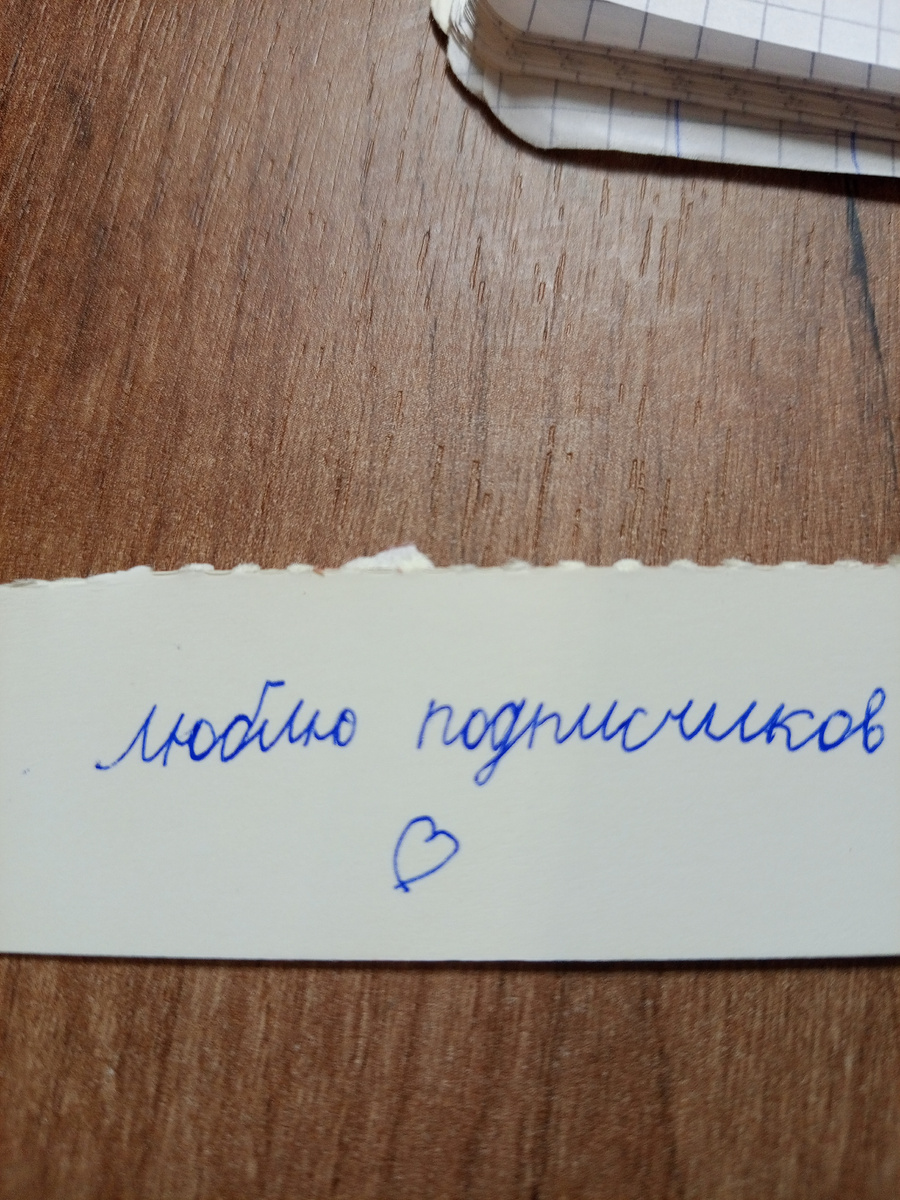 люблю подписчиков